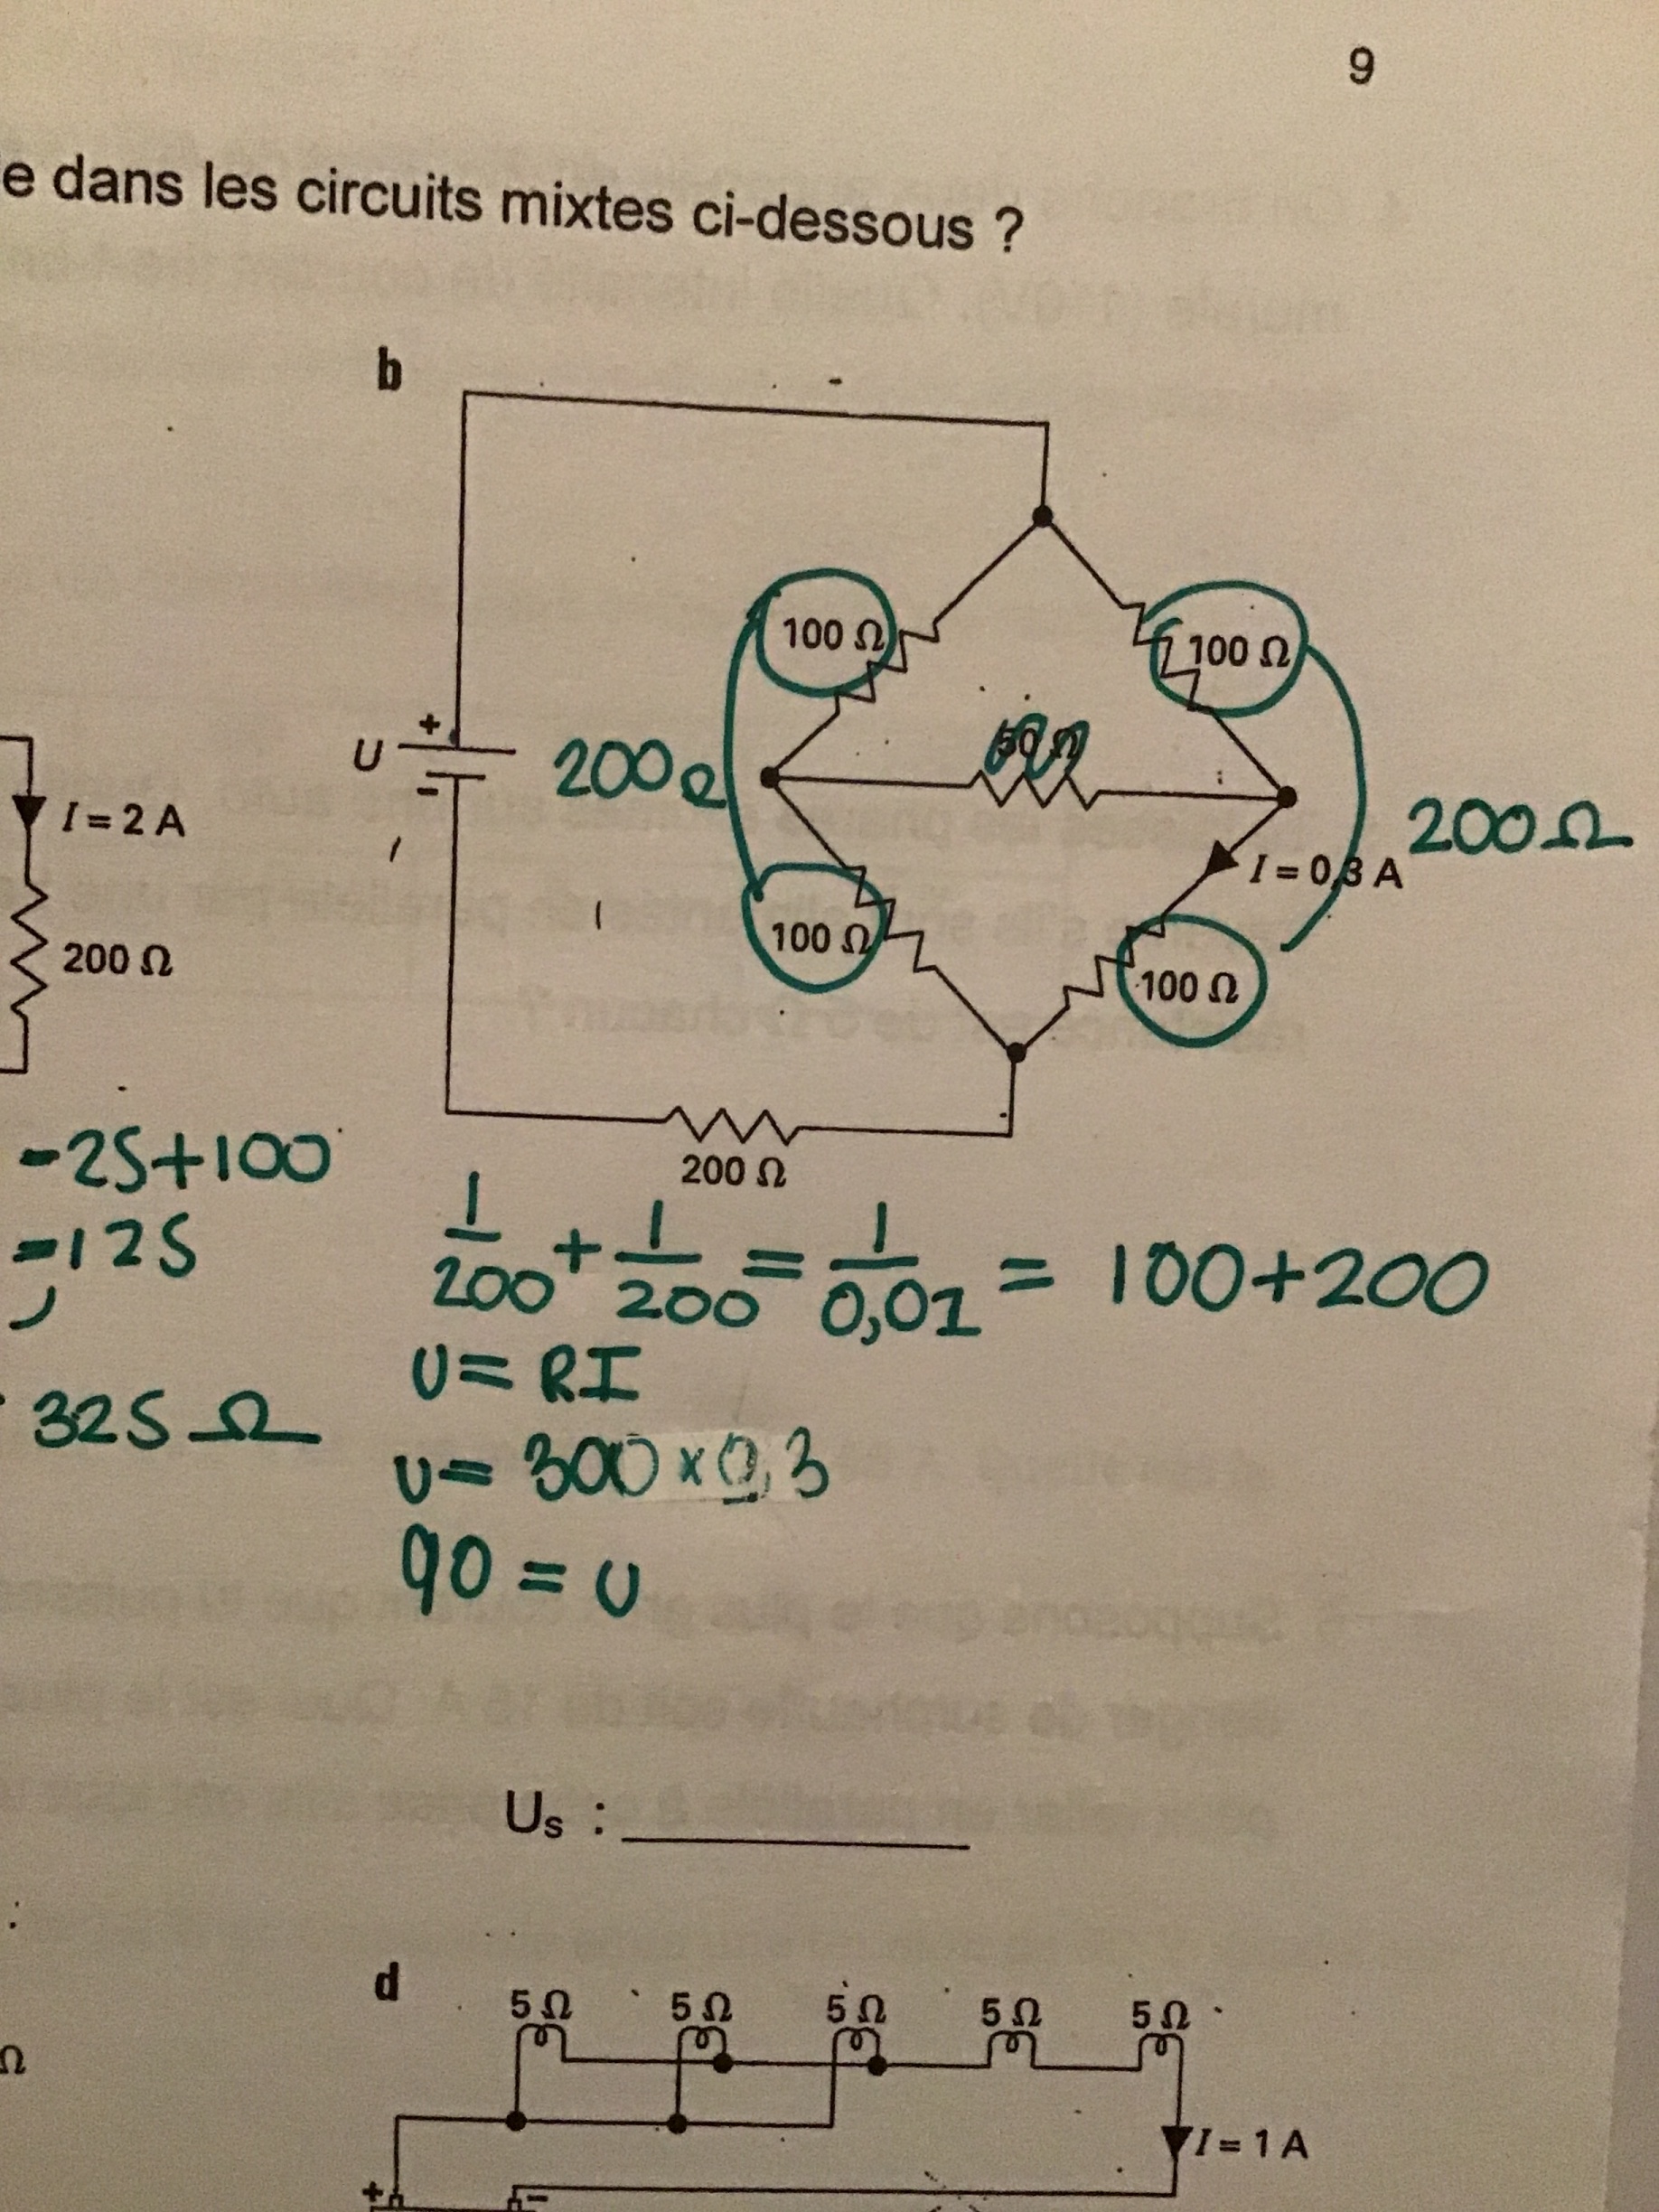 9
e dans les circuits mixtes ci-dessous ?
b
100 Ω
100 Ω
+
U
-
200Ω
I = 2 A
200 Ω
I = 0,3 A
200 Ω
100 Ω
100 Ω
200 Ω
-25+100
=125
325 Ω
1/200 + 1/200 = 1/0,01 = 100+200
U= RI
U= 300 x 0,3
90 = U
Us : ____________
d
5 Ω 5 Ω 5 Ω 5 Ω 5 Ω
Ω
I = 1 A
+ -